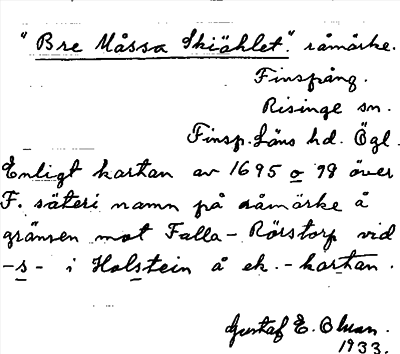 "Bre Måssa Skiöhlet". råmärke.
Finspång.
Risinge sn.
Finsp. Läns hd. Ögl.
Enligt kartan av 1695 o 98 över
F. säteri namn på råmärke å
gränsen mot Falla - Rörstorp vid
-s- i Holstein å ek. - kartan.
Gustaf E. Olsson.
1933.